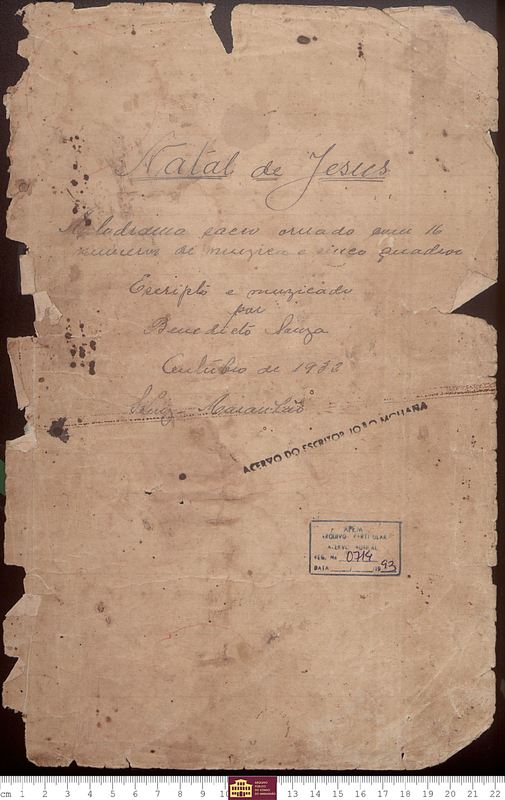 Natal de Jesus
Melodrama sacro ornado com 16
numeros de muzica e sinco quadros
Escripto e muzicado
por
Benedicto Souza
Outubro de 1932
Maranhão
ACERVO DO ESCRITOR JOÃO MOHANA
APEM
ARQUIVO PARTICULAR
ACERVO MUSICAL
REG. No 0714
DATA / /1993
cm 1 2 3 4 5 6 7 8 9 13 14 15 16 17 18 19 20 21 22
ARQUIVO
PÚBLICO
DO ESTADO
DO MARANHÃO